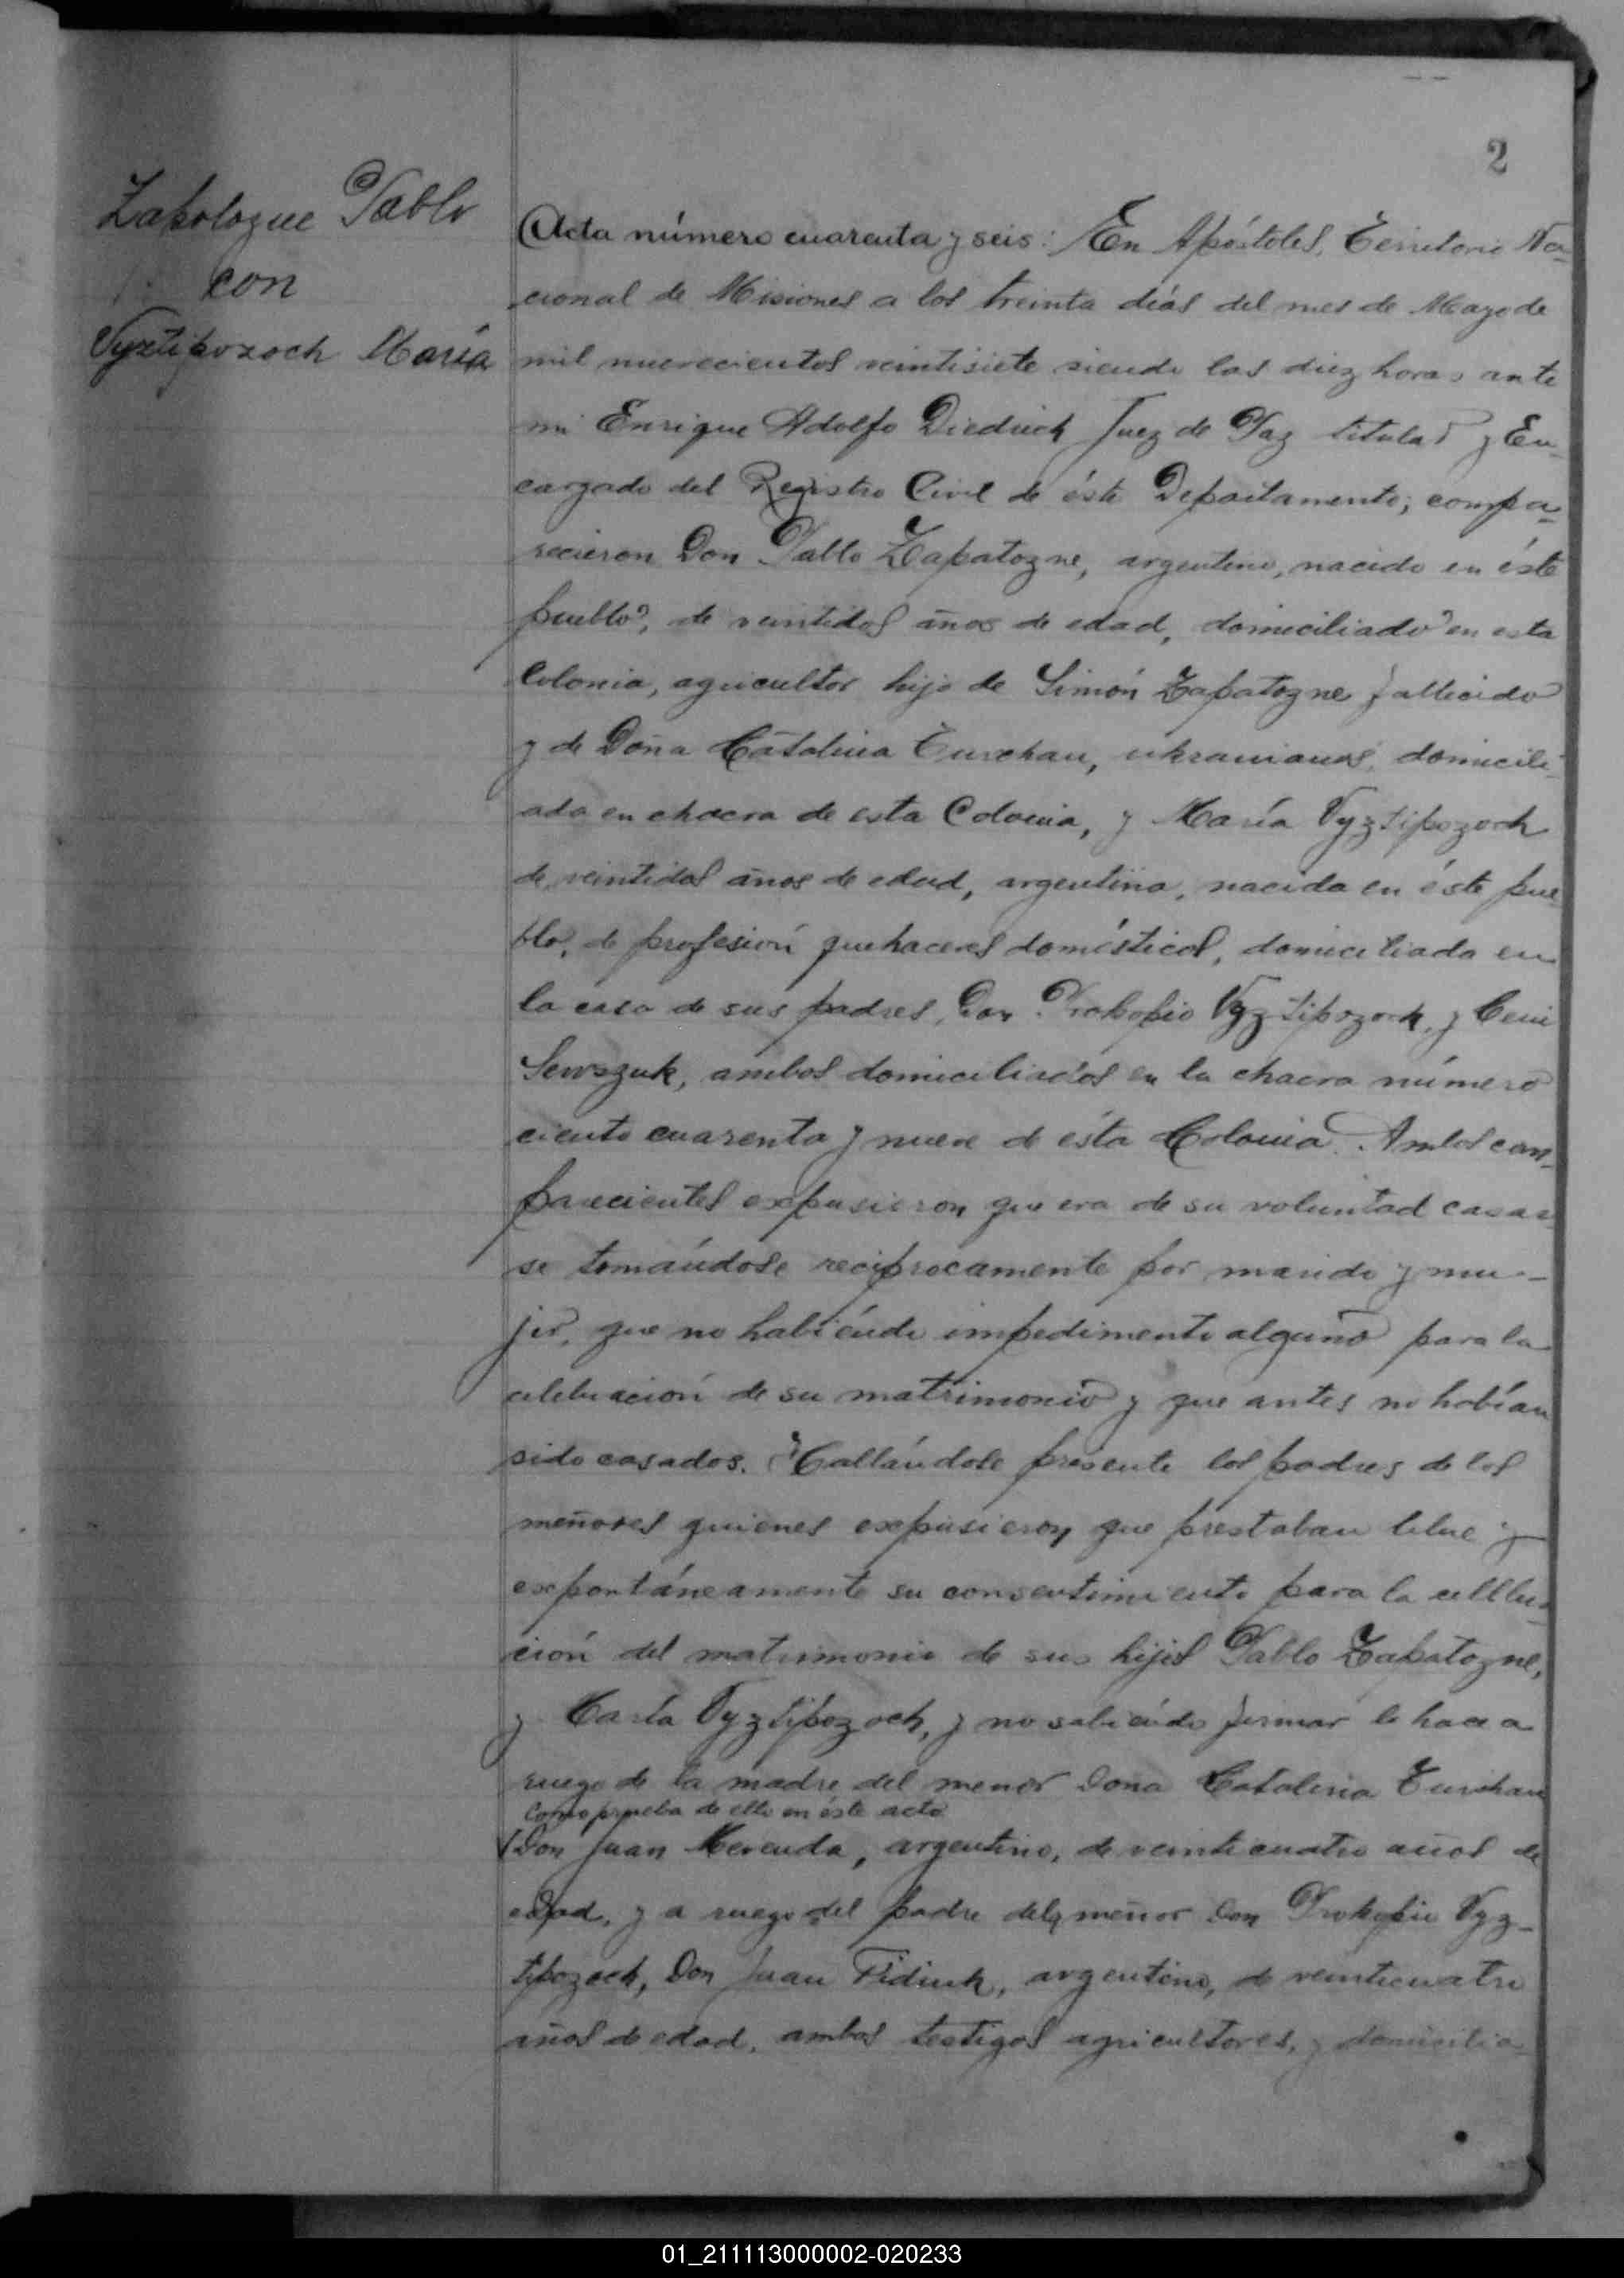 2
Zapologne Pablo
con
Vyztipozoch María
Acta número cuarenta y seis: En Apóstoles, Territorio Na-
cional de Misiones a los treinta días del mes de Mayo de
mil nuevecientos veintisiete siendo las diez horas ante
mi Enrique Adolfo Diedrich Juez de Paz titular y En-
cargado del Registro Civil de éste Departamento; compa-
recieron Don Pablo Zapatogne, argentino, nacido en éste
pueblo, de veintidos años de edad, domiciliado en esta
Colonia, agricultor hijo de Simón Zapatogne fallecido
y de Doña Catalina Turchau, ukranianos, domicili-
ada en chacra de esta Colonia, y María Vyztipozoch
de veintidos años de edad, argentina, nacida en éste pue
blo, de profesión quehaceres domésticos, domiciliada en
la casa de sus padres, Don Prokopio Vyztipozoch, y Ceni
Sewszuk, ambos domiciliados en la chacra número
ciento cuarenta y nueve de ésta Colonia. Ambos com-
parecientes expusieron que era de su voluntad casar
se tomándose reciprocamente por marido y mu-
jer, que no habiéndo impedimento alguno para la
celebración de su matrimonio y que antes no habían
sido casados. Hallándose presente los padres de los
meñores quienes expusieron que prestaban libre y
expontáneamente su consentimiento para la cellbu-
ción del matrimonio de sus hijos Pablo Zapatogne,
y María Vyztipozoch, y no sabiéndo firmar lo hace a
ruego de la madre del menor Dona Catalina Turchau
como prueba de ello en éste acto
Don Juan Merenda, argentino, de veinticuatro años de
edad, y a ruego del padre dela meñor Don Prokopio Vyz-
tipozoch, Don Juan Fidiuk, argentino, de veinticuatro
años de edad, ambos testigos agricultores, y domicilia-
01_211113000002-020233